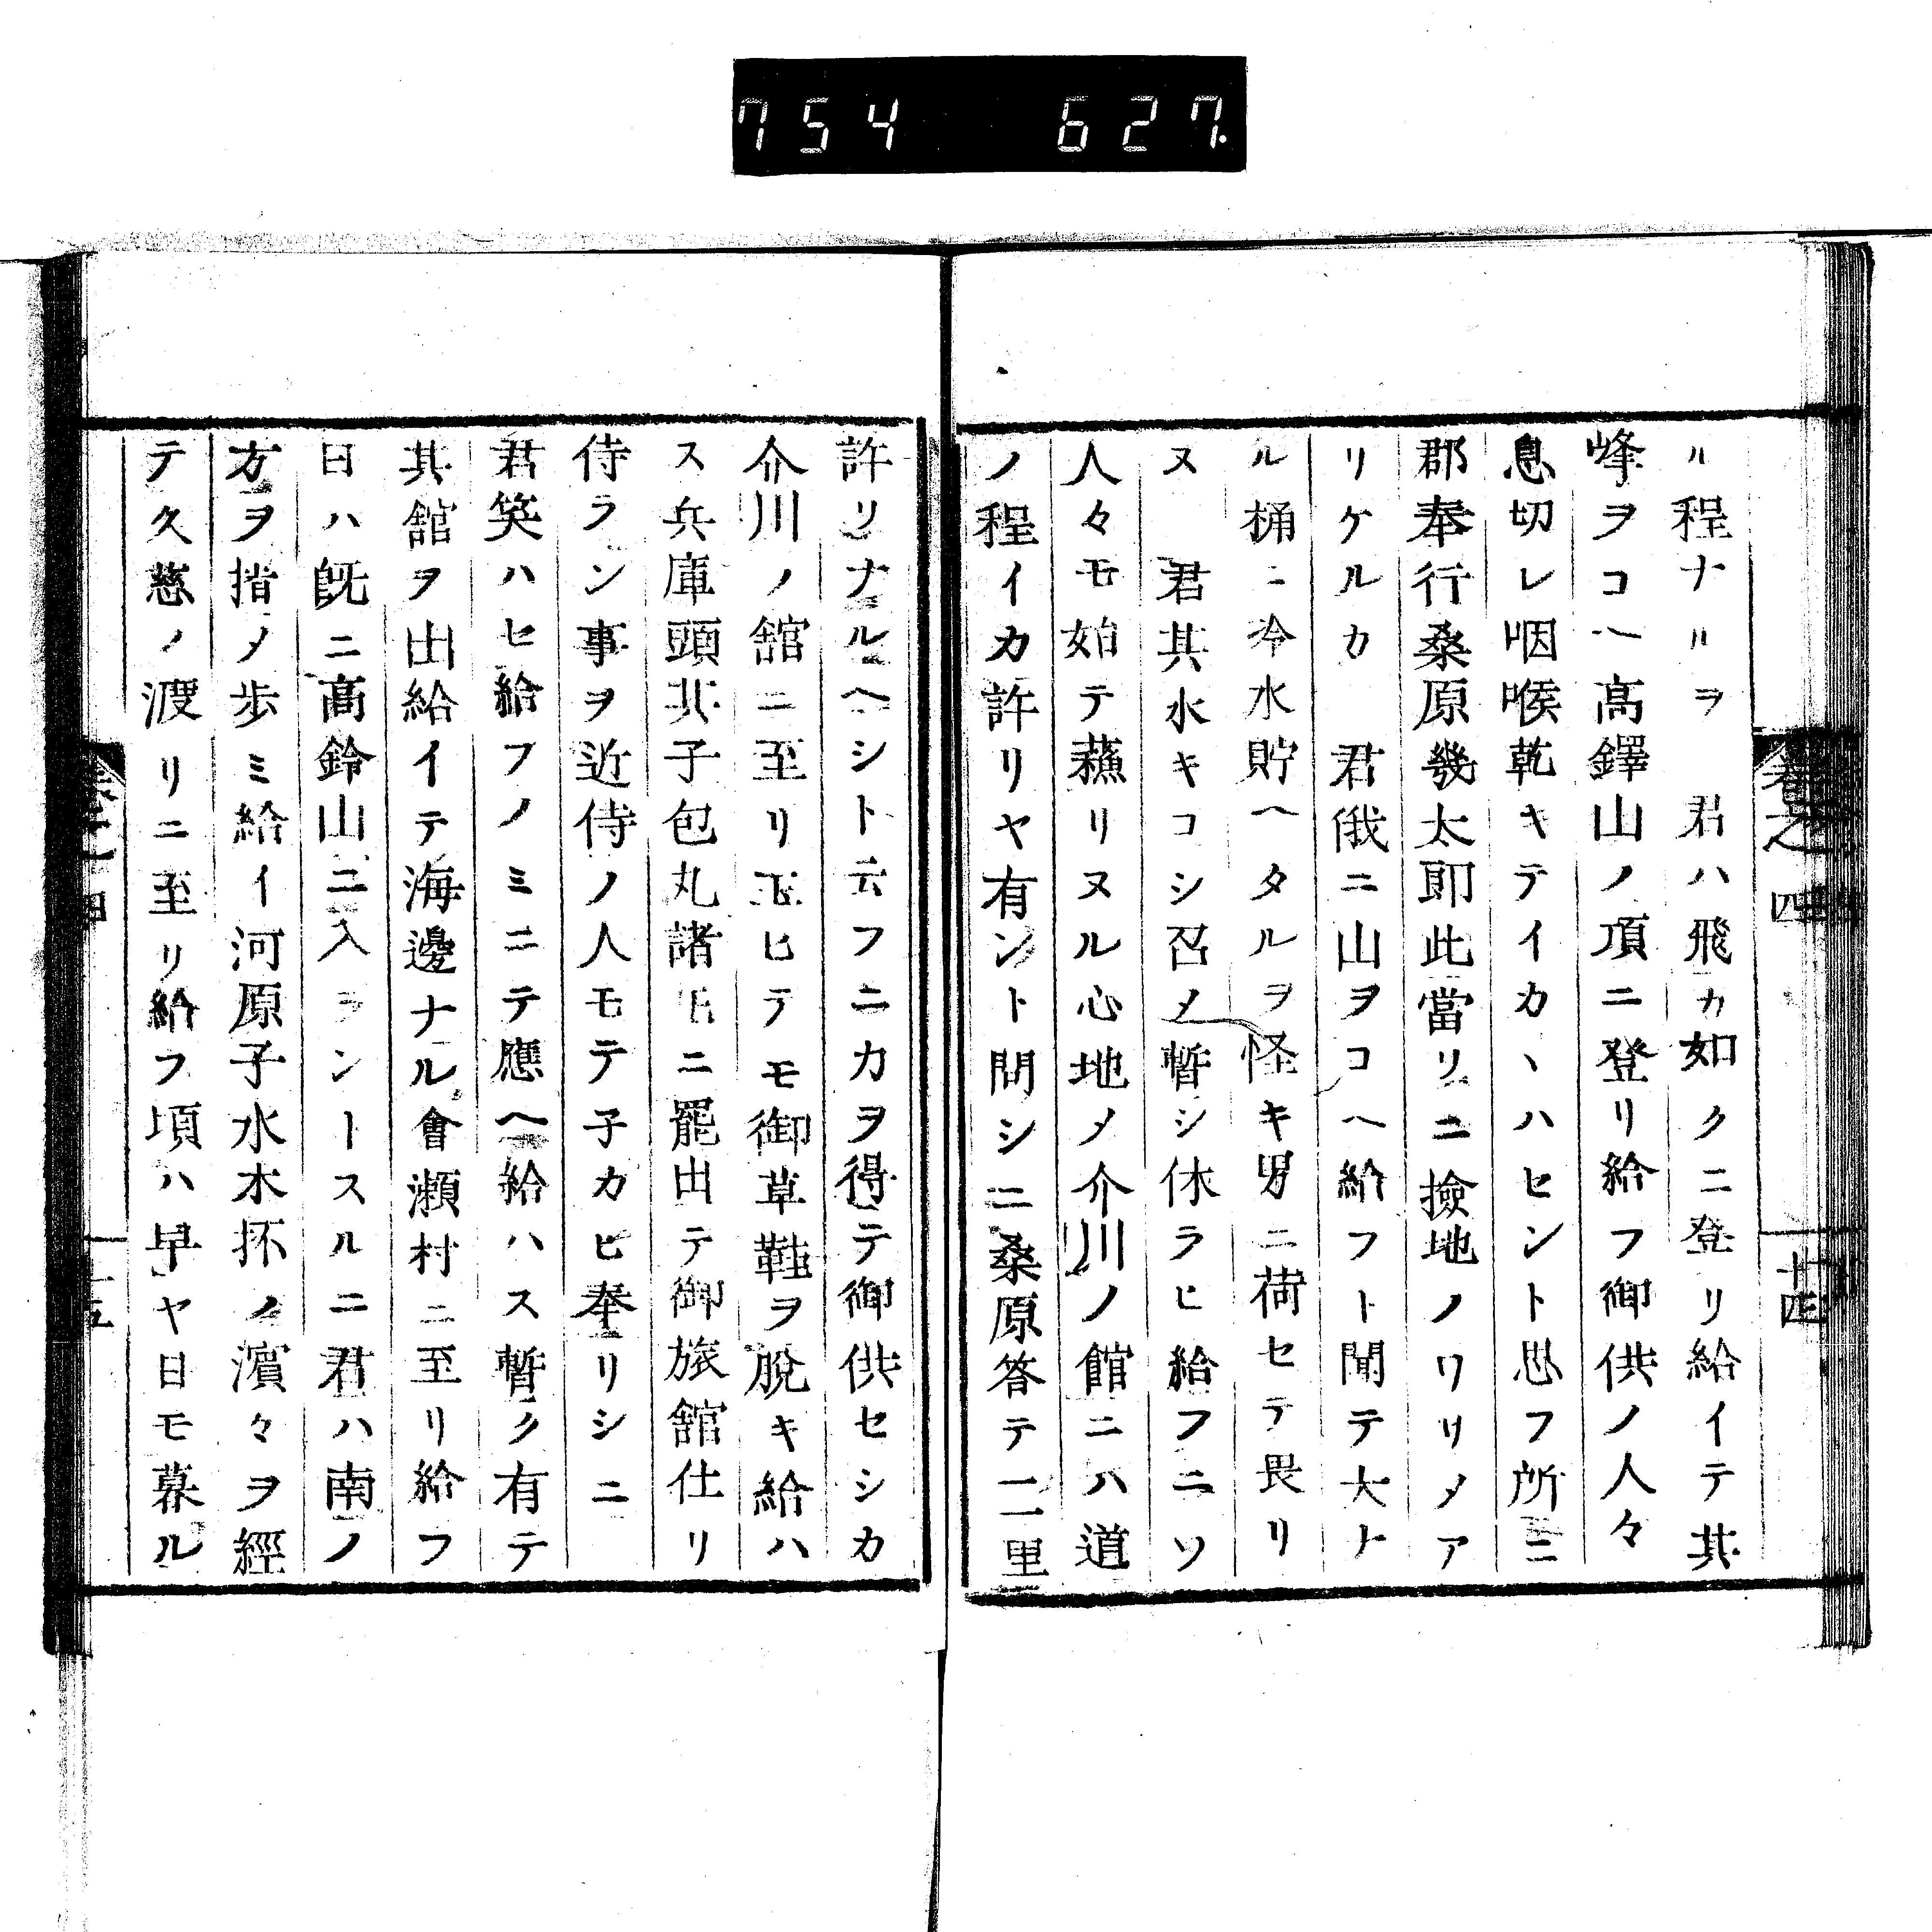 754 627.
ル程ナルヲ　君ハ飛カ如クニ登リ給イテ其
峰ヲコヘ高鐸山ノ頂ニ登リ給フ御供ノ人々
息切レ咽喉乾キテイカヽハセント思フ所ニ
郡奉行桑原幾太郎此當リニ撿地ノワリメア
リケルカ　君俄ニ山ヲコヘ給フト聞テ大ナ
ル桶ニ冷水貯ヘタルヲ怪キ男ニ荷セテ畏リ
ヌ　君其水キコシ召メ暫シ休ラヒ給フニソ
人々モ始テ蘓リヌル心地メ介川ノ館ニハ道
ノ程イカ許リヤ有ント問シニ桑原答テ二里
許リナルヘシト云フニカヲ得テ御供セシカ
介川ノ館ニ至リ玉ヒテモ御草鞋ヲ脱キ給ハ
ス兵庫頭其子包丸諸モニ罷出テ御旅舘仕リ
侍ラン事ヲ近侍ノ人モテ子カヒ奉リシニ
君笑ハセ給フノミニテ應ヘ給ハス暫ク有テ
其舘ヲ出給イテ海邊ナル會瀬村ニ至リ給フ
日ハ既ニ高鈴山ニ入ラントスルニ君ハ南ノ
方ヲ指メ歩ミ給イ河原子水木抔ノ濵々ヲ經
テ久慈ノ渡リニ至リ給フ頃ハ早ヤ日モ暮ル
巻之四
十四